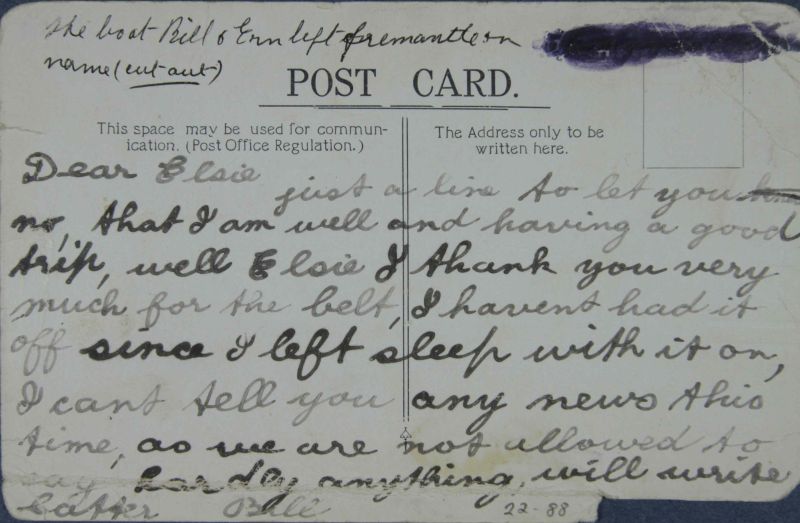 the boat Bill & Ern left fremantle on
name (cut out)
POST CARD.
This space may be used for commun-
ication. (Post Office Regulation.)
The Address only to be
written here.
Dear Elsie
just a line to let you
no, that I am well and having a good
trip, well Elsie I thank you very
much for the belt, I havent had it
off since I left sleep with it on,
I cant tell you any news this
time, as we are not allowed to
say hardly anything, will write
latter Bill
22-88